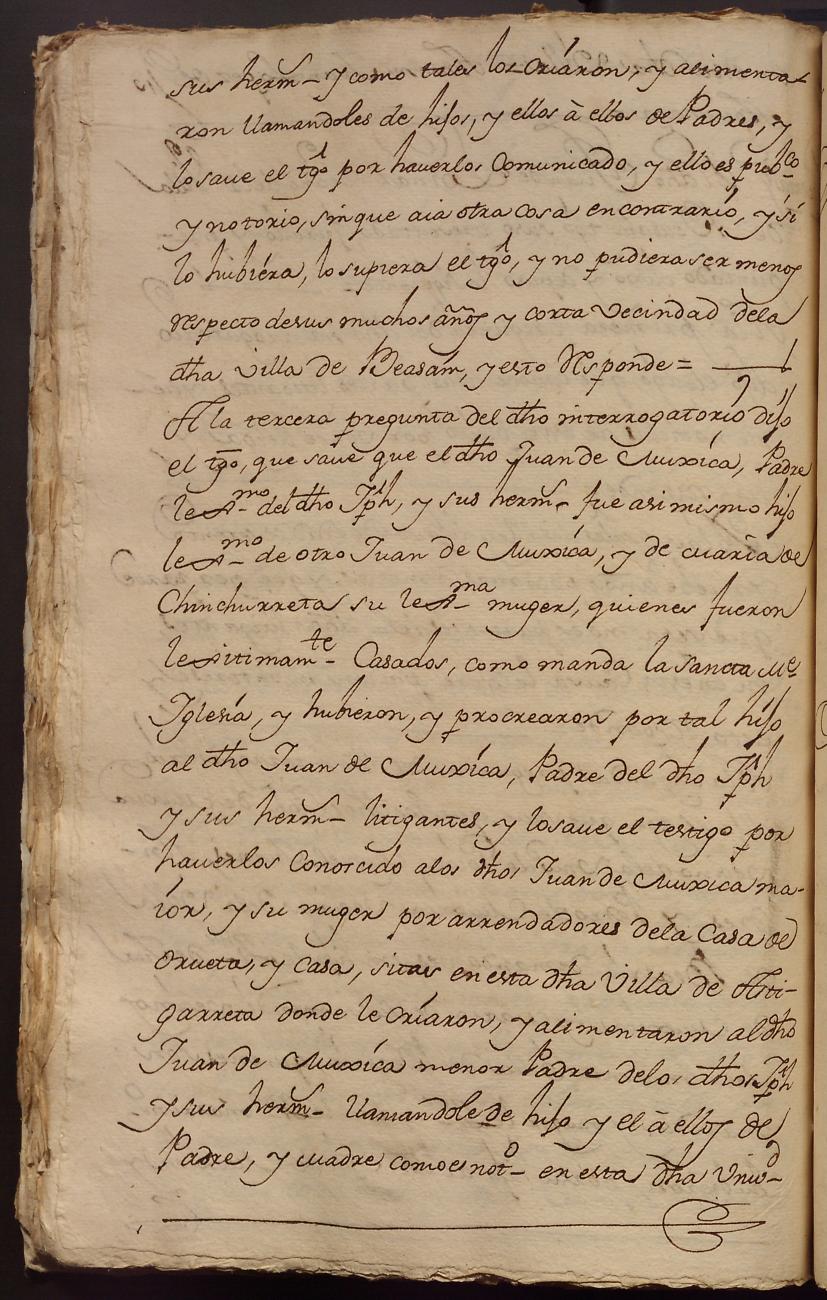 sus herms- y como tales los criaron, y alimenta-
ron llamandoles de hijos, y ellos â ellos de Padres, y
lo save el tgo por haverlos comunicado, y ello es pubco
y notorio, sin que aia otra cosa en contrario, y si
lo hubiera, lo supiera el tgo, y no pudiera ser menos
respecto de sus muchos años y corta vecindad dela
dha Villa de Beasain, y esto responde =
A la tercera pregunta del dho interrogatorio dijo
el tgo, que save que el dho Juan de Muxica, Padre
lexmo del dho Jph, y sus herms- fue asimismo hijo
lexmo de otro Juan de Muxica, y de maria de
Chinchurreta su lexma muger, quienes fueron
lexitimamte Casados, como manda la sancta Me
Iglesia, y hubieron, y procrearon por tal hijo
al dho Juan de Muxica, Padre del dho Jph
y sus herms- litigantes, y lo save el testigo por
haverlos conoscido alos dhos Juan de Muxica ma-
ior, y su muger por arrendadores dela Casa de
orueta, y casa, sitas en esta dha Villa de Asti-
garreta donde le criaron, y alimentaron al dho
Juan de Muxica menor Padre delos dhos Jph
y sus herms- llamandole de hijo y el â ellos de
Padre, y madre como es noto en esta dha Univd